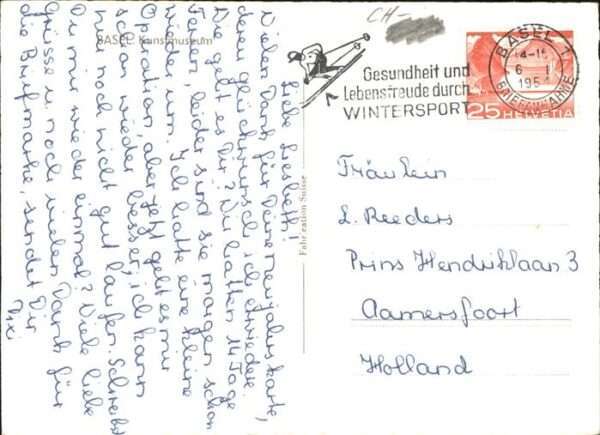 CH-
BASEL. Kunstmuseum
Liebe Liesbeth!
Vielen Dank für Deine neujahrskarte,
deren glückwunsch ich erwiedere.
Wie geht es Dir? Wir hatten 14 Tage
Ferien, leider sind sie morgen schon
wieder um. Ich hatte eine kleine
Operation, aber jetzt geht es mir
schon wieder besser, ich kann
nur noch nicht gut laufen. Schreibst
Du mir wieder einmal? Viele liebe
Grüsse u. noch vielen Dank für
die Briefmarke, sendet Dir
Fabrication Suisse
Gesundheit und
Lebensfreude durch
WINTERSPORT
BASEL 1
6
1954
BRIEFAUFNAHME
25 HELVETIA
Fräulein
L. Reeders
Prins Hendriklaan 3
Aamersfoort
Holland